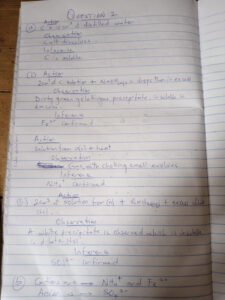 Question 2
Action
(a) C + 10cm³ of distilled water
Observation
Salt dissolves
Inference
C is soluble
(i) Action
2cm³ of C solution + NaOH(aq) in drops then in excess
Observation
Dirty green gelatinous precipitate, insoluble in
excess
Inference
Fe²⁺ confirmed
Action
Solution from + heat
Observation
Gas with choking smell evolves
Inference
NH₄⁺ confirmed
Action
2cm³ of solution from (a) +
Observation
A white precipitate is observed which is insoluble
in
Inference
SO₄²⁻ confirmed
(b) Cations are NH₄⁺ and Fe²⁺
Anion is SO₄²⁻